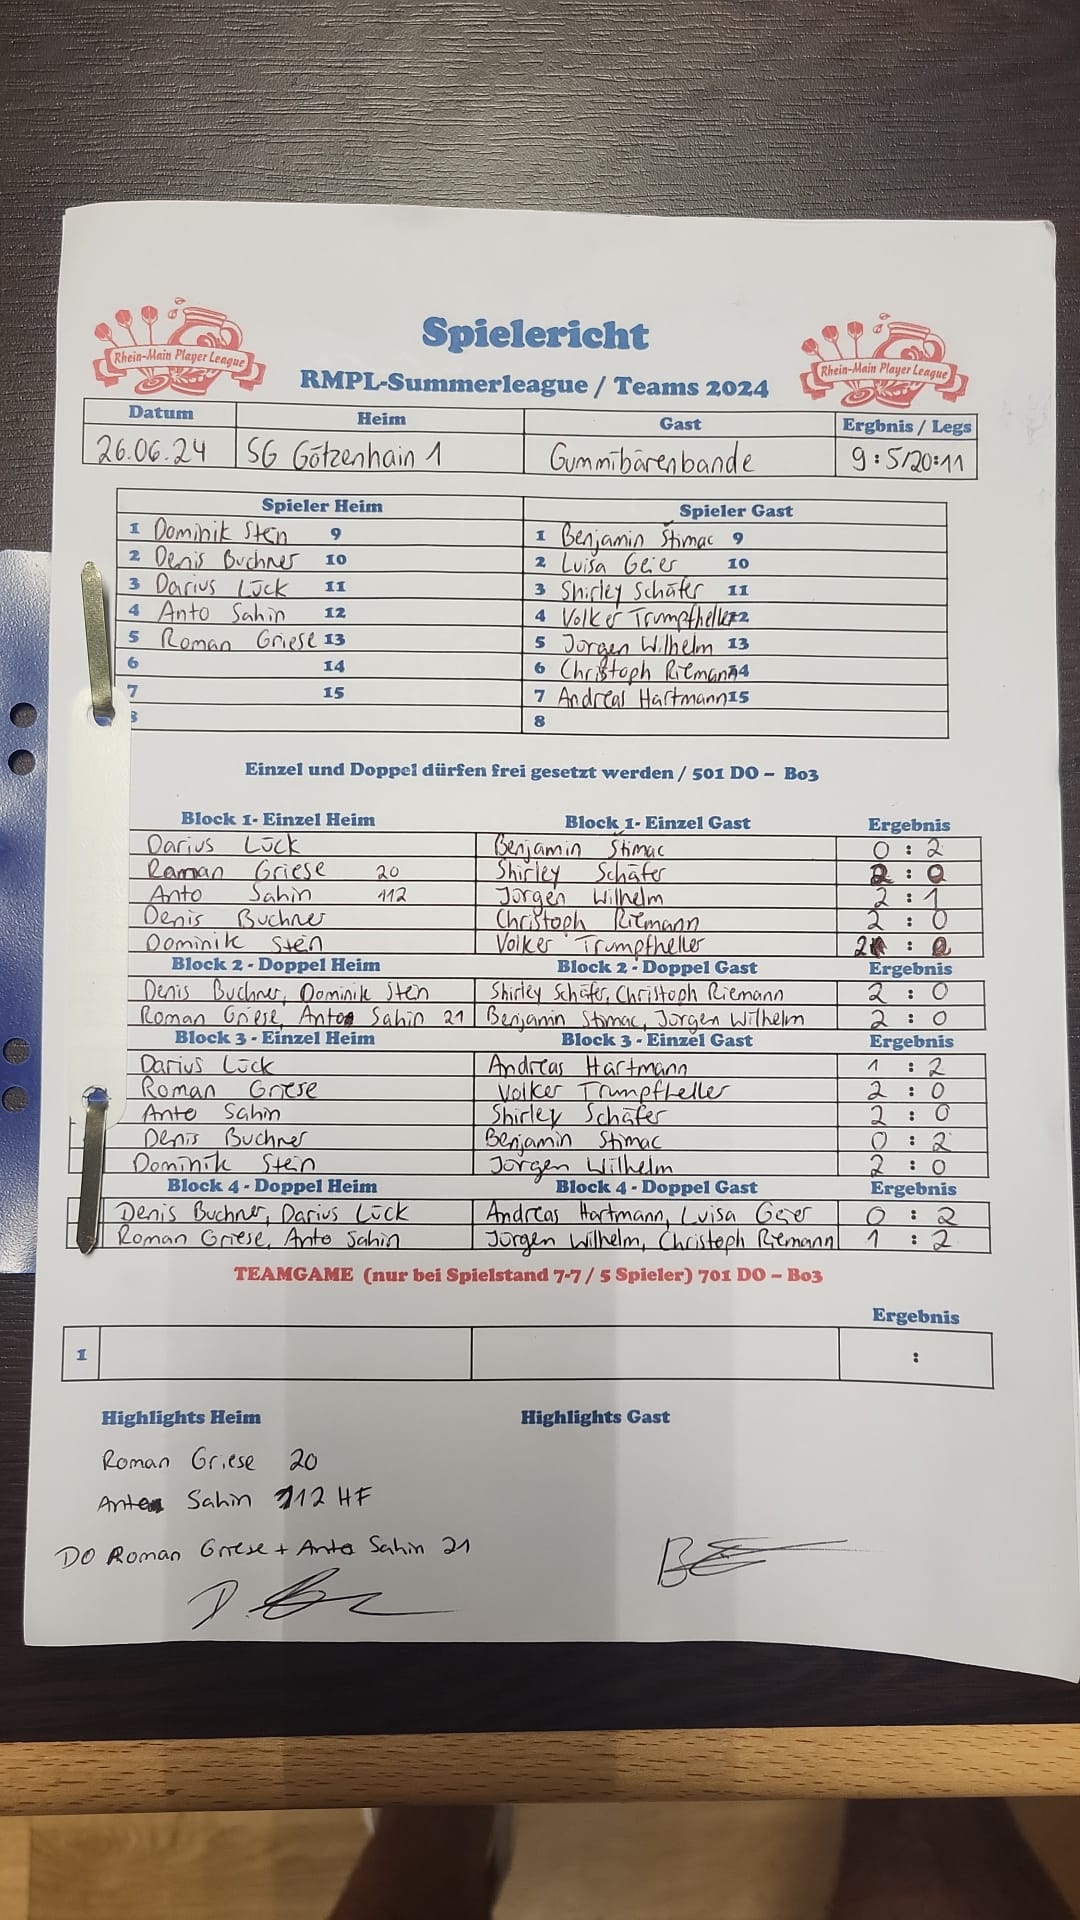 Rhein-Main Player League
Rhein-Main Player League
Spielericht
RMPL-Summerleague / Teams 2024
Datum Heim Gast Ergbnis / Legs
26.06.24 SG Götzenhain 1 Gummibärenbande 9:5/20:11
Spieler Heim Spieler Gast
1 Dominik Stein 9 1 Benjamin Stimac 9
2 Denis Buchner 10 2 Luisa Geier 10
3 Darius Lück 11 3 Shirley Schäfer 11
4 Anto Sahin 12 4 Volker Trumpfheller 12
5 Roman Griese 13 5 Jürgen Wilhelm 13
6 14 6 Christoph Riemann 14
7 15 7 Andreas Hartmann 15
8 8
Einzel und Doppel dürfen frei gesetzt werden / 501 DO – Bo3
Block 1- Einzel Heim Block 1- Einzel Gast Ergebnis
Darius Lück Benjamin Stimac 0 : 2
Roman Griese 20 Shirley Schäfer 2 : 0
Anto Sahin 112 Jürgen Wilhelm 2 : 1
Denis Buchner Christoph Riemann 2 : 0
Dominik Stein Volker Trumpfheller 2 :
Block 2 - Doppel Heim Block 2 - Doppel Gast Ergebnis
Denis Buchner, Dominik Stein Shirley Schäfer, Christoph Riemann 2 : 0
Roman Griese, Anto Sahin 21 Benjamin Stimac, Jürgen Wilhelm 2 : 0
Block 3 - Einzel Heim Block 3 - Einzel Gast Ergebnis
Darius Lück Andreas Hartmann 1 : 2
Roman Griese Volker Trumpfheller 2 : 0
Anto Sahin Shirley Schäfer 2 : 0
Denis Buchner Benjamin Stimac 0 : 2
Dominik Stein Jürgen Wilhelm 2 : 0
Block 4 - Doppel Heim Block 4 - Doppel Gast Ergebnis
Denis Buchner, Darius Lück Andreas Hartmann, Luisa Geier 0 : 2
Roman Griese, Anto Sahin Jürgen Wilhelm, Christoph Riemann 1 : 2
TEAMGAME (nur bei Spielstand 7-7 / 5 Spieler) 701 DO – Bo3
Ergebnis
1 :
Highlights Heim Highlights Gast
Roman Griese 20
Anto Sahin 112 HF
DO Roman Griese + Anto Sahin 21